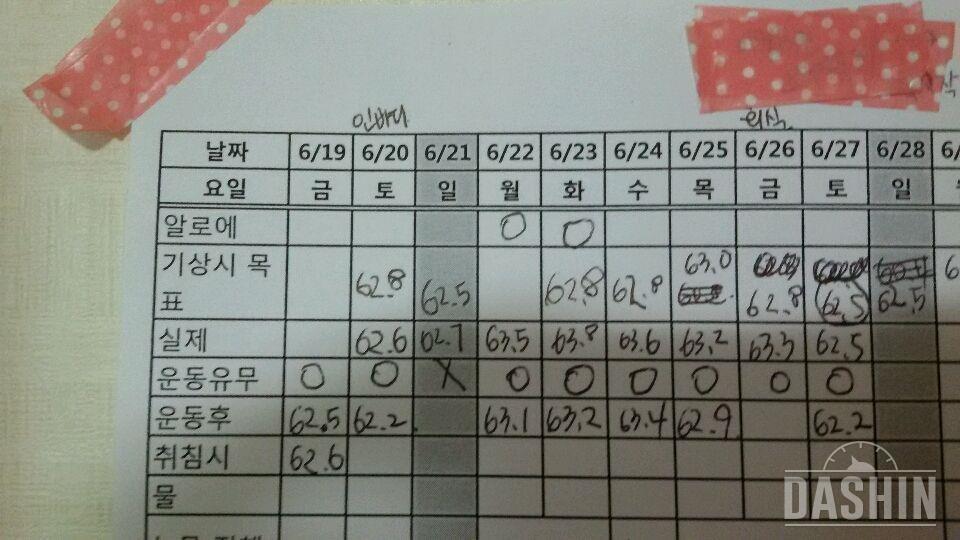 인바디 회식
날짜 6/19 6/20 6/21 6/22 6/23 6/24 6/25 6/26 6/27 6/28 6/
요일 금 토 일 월 화 수 목 금 토 일
알로에 O O
63.0
기상시 목표 62.8 62.5 62.8 62.8 62.8 62.5 62.5 6
실제 62.6 62.7 63.5 63.8 63.6 63.2 63.3 62.5
운동유무 O O X O O O O O O
운동후 62.5 62.2 63.1 63.2 63.4 62.9 62.2
취침시 62.6
물
DASHIN